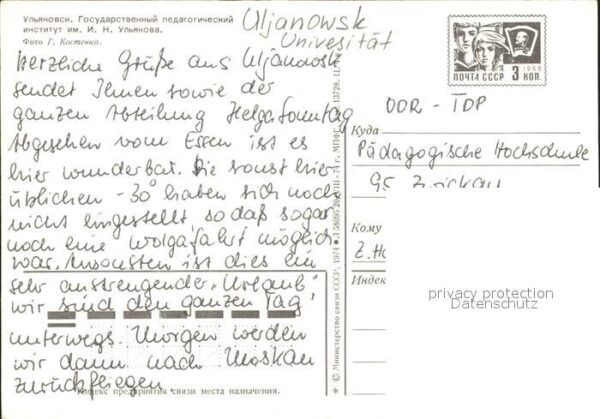 Ульяновск. Государственный педагогический
институт им. И. Н. Ульянова.
Фото Г. Костенко.
Uljanowsk
Univesität
Herzliche Grüße aus Uljanowsk
sendet Ihnen sowie der
ganzen Abteilung Helga Sonntag
Abgesehen vom Essen ist es
hier wunderbar. Die sonst hier
üblichen -30° haben sich noch
nicht eingestellt, so daß sogar
noch eine Wolgafahrt möglich
war. Ansonsten ist dies ein
sehr anstrengender „Urlaub"
wir sind den ganzen Tag
unterwegs. Morgen werden
wir dann nach Moskau
zurückfliegen
Индекс предприятия связи места назначения.
© Министерство связи СССР, 1974
ПОЧТА СССР 3 КОП.
1966
DDR - TDP
Куда
Pädagogische Hochschule
95 Zwickau
Кому
Z. Ho
Индекс
privacy protection
Datenschutz